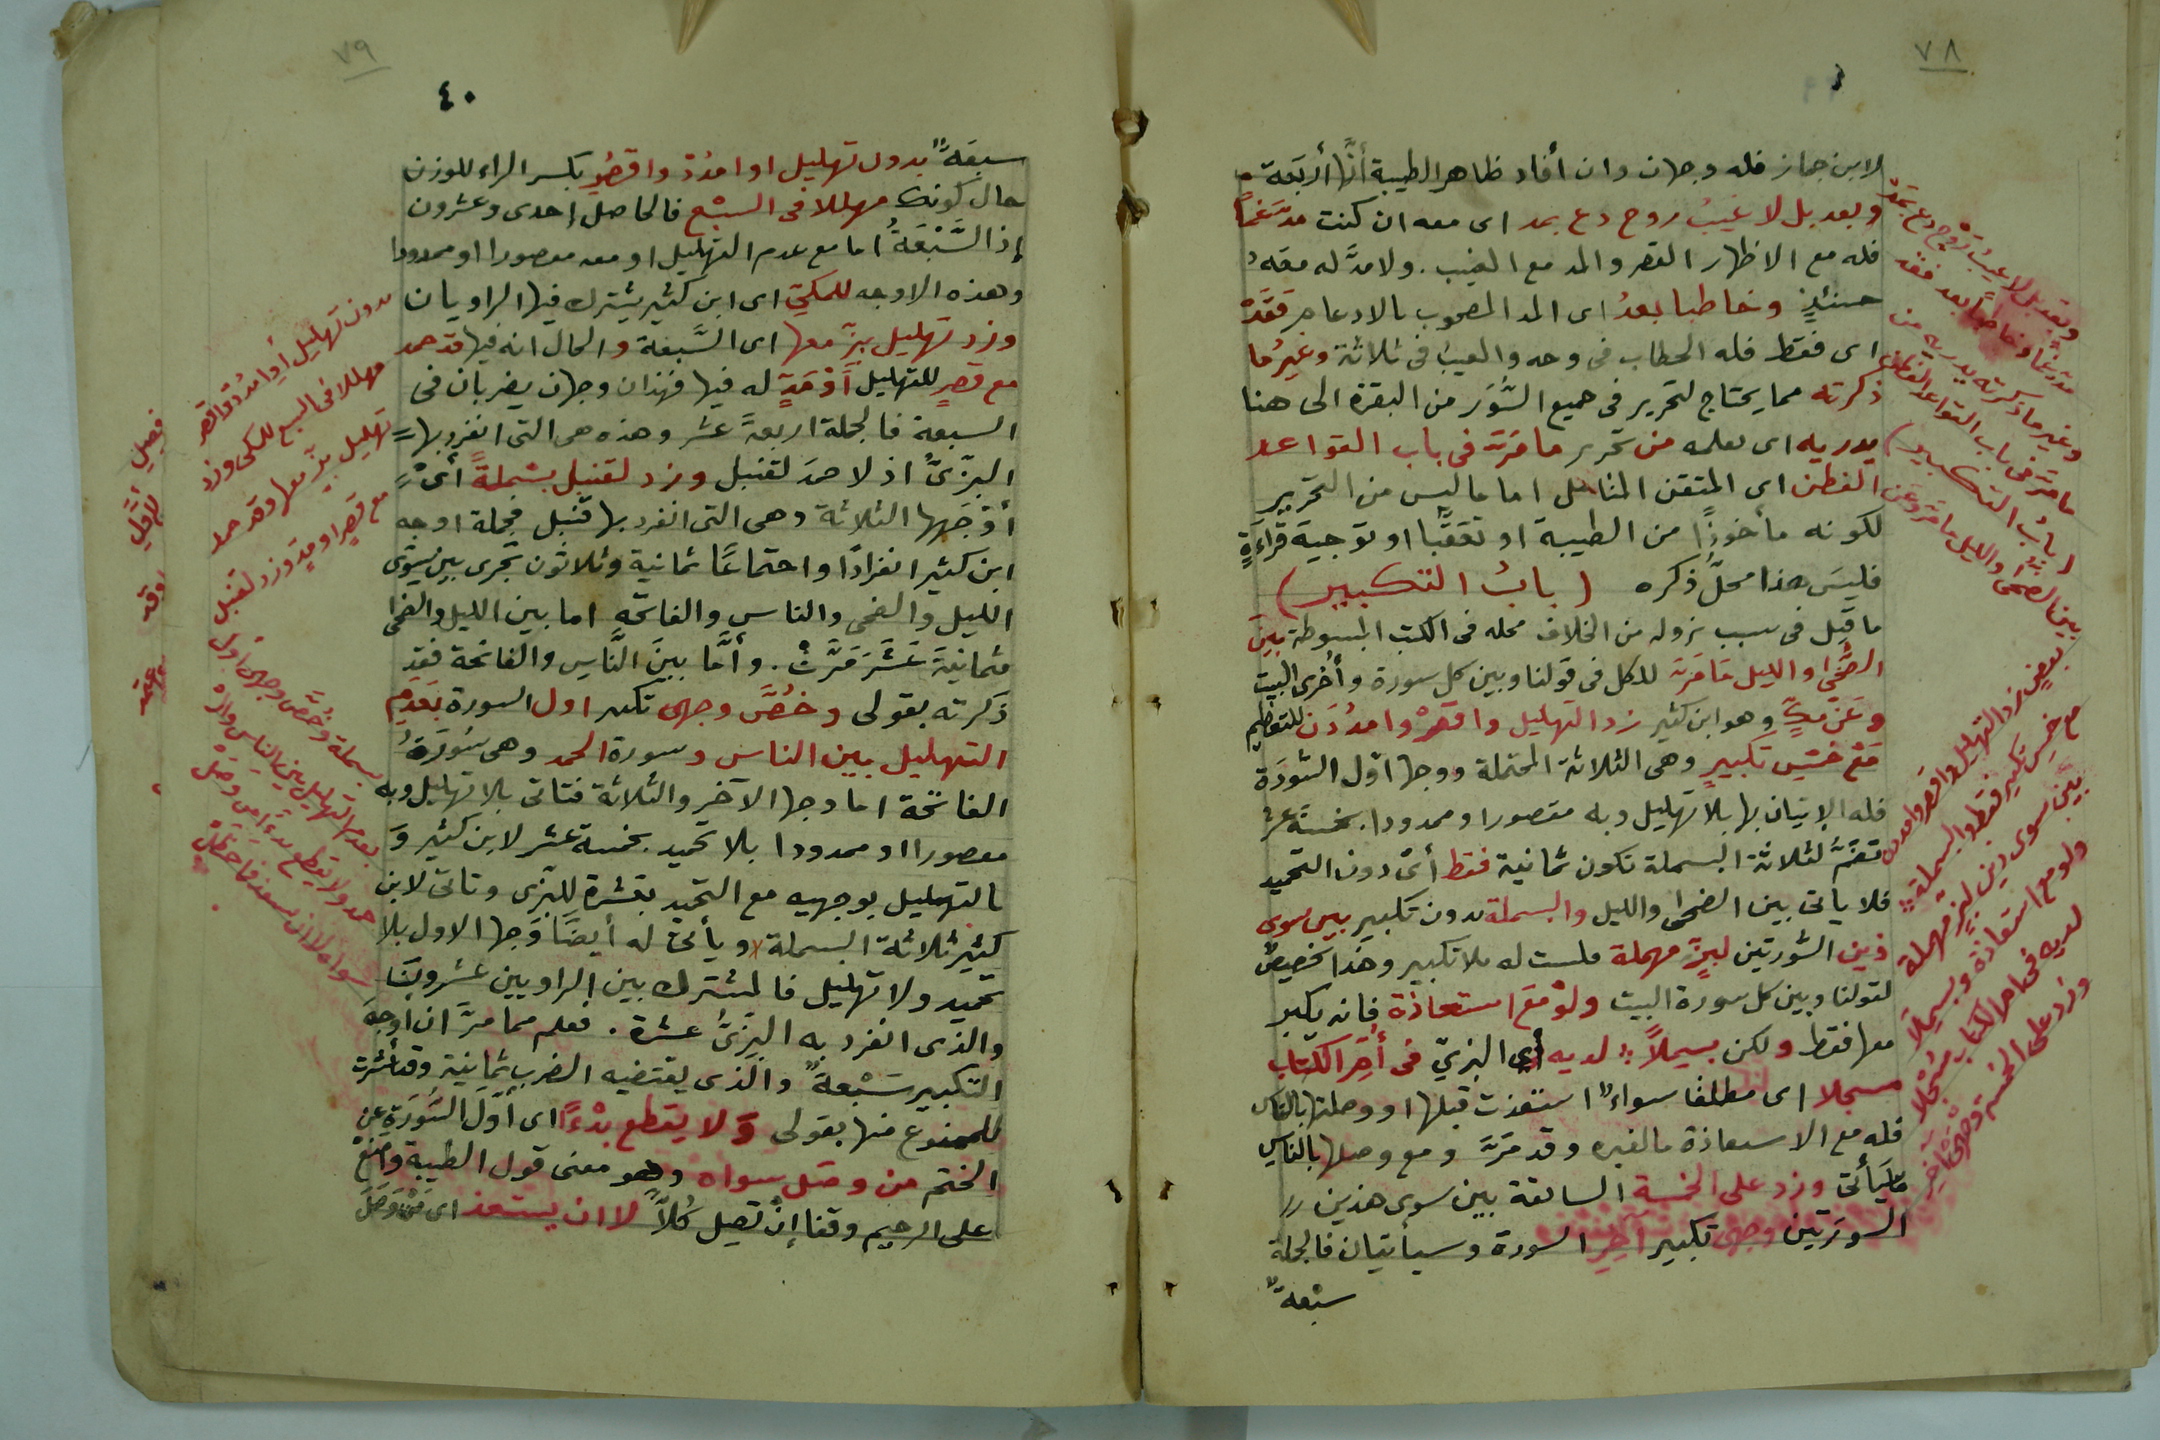 ٧٨
لابن جماز فله وجهان وان أفاد ظاهر الطيبة أنها أربعة
وبعد بل لا غيب روح دع بمد اى معه ان كنت مدغما
فله مع الاظهار القصر والمد مع الغيب . ولا مد له معه
حينئذ وخاطبا بعد اى المد المصحوب بالادغام فقد
اى فقط فله الخطاب فى وجه والغيب فى ثلاثة وغير ما
ذكرته مما يحتاج لتحرير فى جميع السور من البقرة الى هنا
يدريه اى يعلمه من تحرير ما مر فى باب القواعد
الفطن اى المتقن المتأمل اما ما ليس من التحرير
لكونه مأخوذا من الطيبة او تعقبا او توجيه قراءة
فليس هذا محل ذكره ( باب التكبير )
ما قيل فى سبب نزوله من الخلاف محله فى الكتب المبسوطة بين
الضحى والليل ما مر للكل فى قولنا وبين كل سورة وأخرى البيت
وعن مك وهو ابن كثير زد التهليل واقصر وامددن للتعظيم
مع خمس تكبير وهى الثلاثة المحتملة ووجها اول السورة
فله الإتيان بها بلا تهليل وبه مقصورا وممدودا . بخمسة عشر
تضم لثلاثة البسملة تكون ثمانية فقط أى دون التحميد
فلا ياتى بين الضحى والليل والبسملة بدون تكبير بين سوى
ذين السورتين لبز مهملة فليست له بلا تكبير وهذا تخصيص
لقولنا وبين كل سورة البيت ولو مع استعاذة فانه يكبر
معها فقط ولكن بسملا لديه أى البزى فى أم الكتاب
مسجلا اى مطلقا سواء استعذت قبلها او وصلتها بالناس
فله مع الاستعاذة ما لغيره وقد مر ومع وصلها بالناس
ما يأتى وزد على الخمسة السابقة بين سوى هذين
السورتين وجهى تكبير آخر السورة وسيأتيان فالجملة
سبعة
وبعد بل لا غيب روح دع بمد
مدغما وخاطبا بعد فقد
وغير ما ذكرته يدريه من
ما مر فى باب القواعد الفطن
( باب التكبير )
بين الضحى والليل ما مر وعن
بعض زد التهليل واقصر وامددن
مع خمس تكبير فقط والبسملة
بين سوى ذين لبز مهملة
ولو مع استعاذة وبسملا
لديه فى ام الكتاب مسجلا
وزد على الخمسة وجهى آخر
٧٩
٤٠
سبعة بدون تهليل او امدد واقصر بكسر الراء للوزن
حال كونك مهللا فى السبع فالحاصل إحدى وعشرون
إذ السبعة اما مع عدم التهليل او معه مقصورا او ممدودا
وهذه الاوجه للمكى اى ابن كثير يشترك فيها الراويان
وزد تهليل بز معها اى السبعة والحال انه فيها قد حمد
مع قصر للتهليل أو مد له فيها فهذان وجهان يضربان فى
السبعة فالجملة اربعة عشر وهذه هى التى انفرد بها
البزى اذ لا حمد لقنبل وزد لقنبل بسملة أى
أوجهها الثلاثة وهى التى انفرد بها قنبل فجملة اوجه
ابن كثير انفرادا واجتماعا ثمانية وثلاثون تجرى بين سوى
الليل والضحى والناس والفاتحة اما بين الليل والضحى
فثمانية عشر مرت . وأما بين الناس والفاتحة فقد
ذكرته بقولى وخص وجهى تكبير اول السورة بعدم
التهليل بين الناس وسورة الحمد وهى سورة
الفاتحة اما وجها الآخر والثلاثة فتاتى بلا تهليل وبه
مقصورا او ممدودا بلا تحميد بخمسة عشر لابن كثير و
بالتهليل بوجهيه مع التحميد بعشرة للبزى وتاتى لابن
كثير ثلاثة البسملة ويأتى له أيضا وجها الاول بلا
تحميد ولا تهليل فالمشترك بين الراويين عشرون
والذى انفرد به البزى عشرة . فعلم مما مر ان اوجه
التكبير سبعة والذى يقتضيه الضرب ثمانية وقد أشرت
للممنوع منها بقولى ولا يقطع بدءا اى أول السورة عن
الختم من وصل سواه وهو معنى قول الطيبة وامنع
على الرحيم وقفا إن تصل كلا لا ان يستعذ اى من وصل
بدون تهليل أو امدد واقصر
مهللا فى السبع للمكى وزد
تهليل بز معها وقد حمد
مع قصر او مد وزد لقنبل
بسملة وخص وجهى اول
بعدم التهليل بين الناس و
حمد ولا يقطع بدءا من وصل
سواه لا ان يستعذ